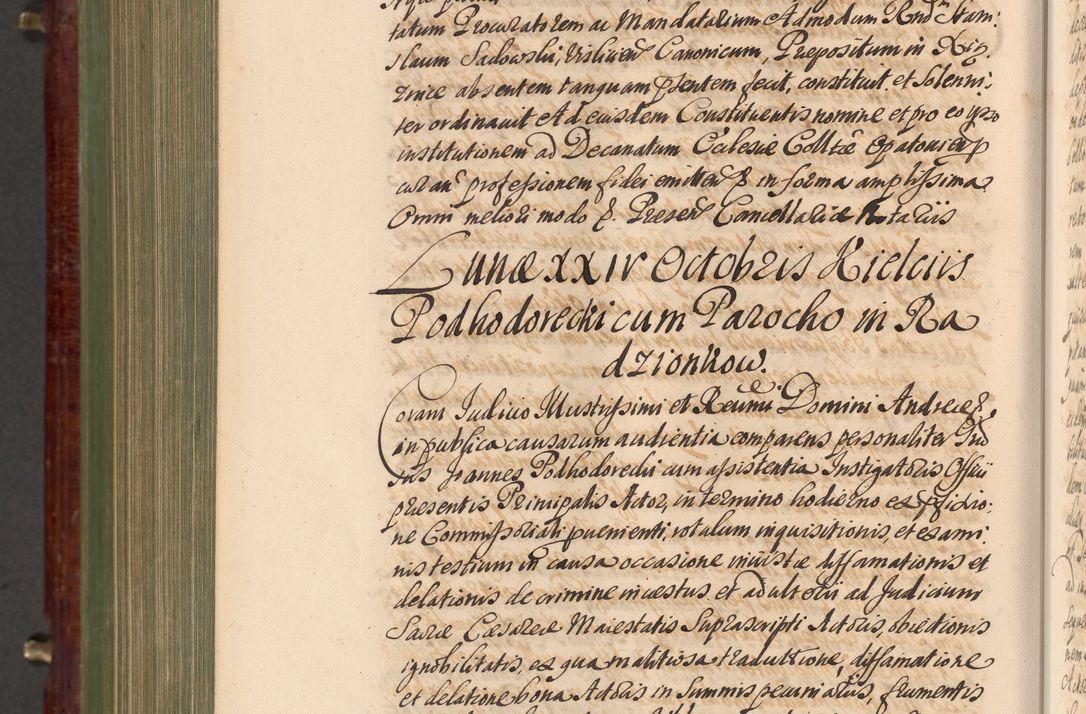 tatum Procuratorem ac Mandatarium Admodum Rnd: Stani:
slaum Sadowski, Visliceñ Canonicum, Præpositum in Xię
znice absentem tanquam psentem fecit, constituit, et solenni:
ter ordinavit Ad eiusdem Constituentis nomine et pro eo ipso
institutionem ad Decanatum Ecclesiæ Colltæ
professionem fidei in forma amplissima
Omni meliori modo &. Presen Cancellariæ Notariis
Lunæ XXIV Octobris Kielciis
Podhodorecki cum Parocho in Ra
dzionkow.
Coram Judicio Illustrissimi et Reumi Domini Andreæ &,
in publica causarum audientia comparens personaliter Gnd
sus Joannes Podhodorecki cum assistentia Instigatoris Officii
præsentis Principalis Actor, in termino hodierno ex pfixio:
ne Commissoriali puenienti, rotulum inquisitionis, et exami:
nis testium in causa occasione iniustæ diffamationis et
delationis de crimine incæstus et adulterii ad Judicium
Sacræ Cæsareæ Maiestatis Suprascripti Actoris, obiectionis
ignobilitatis, ex qua malitiosa traductione, diffamatione
et delatione bona Actoris in summis pecuniariis, frumentis